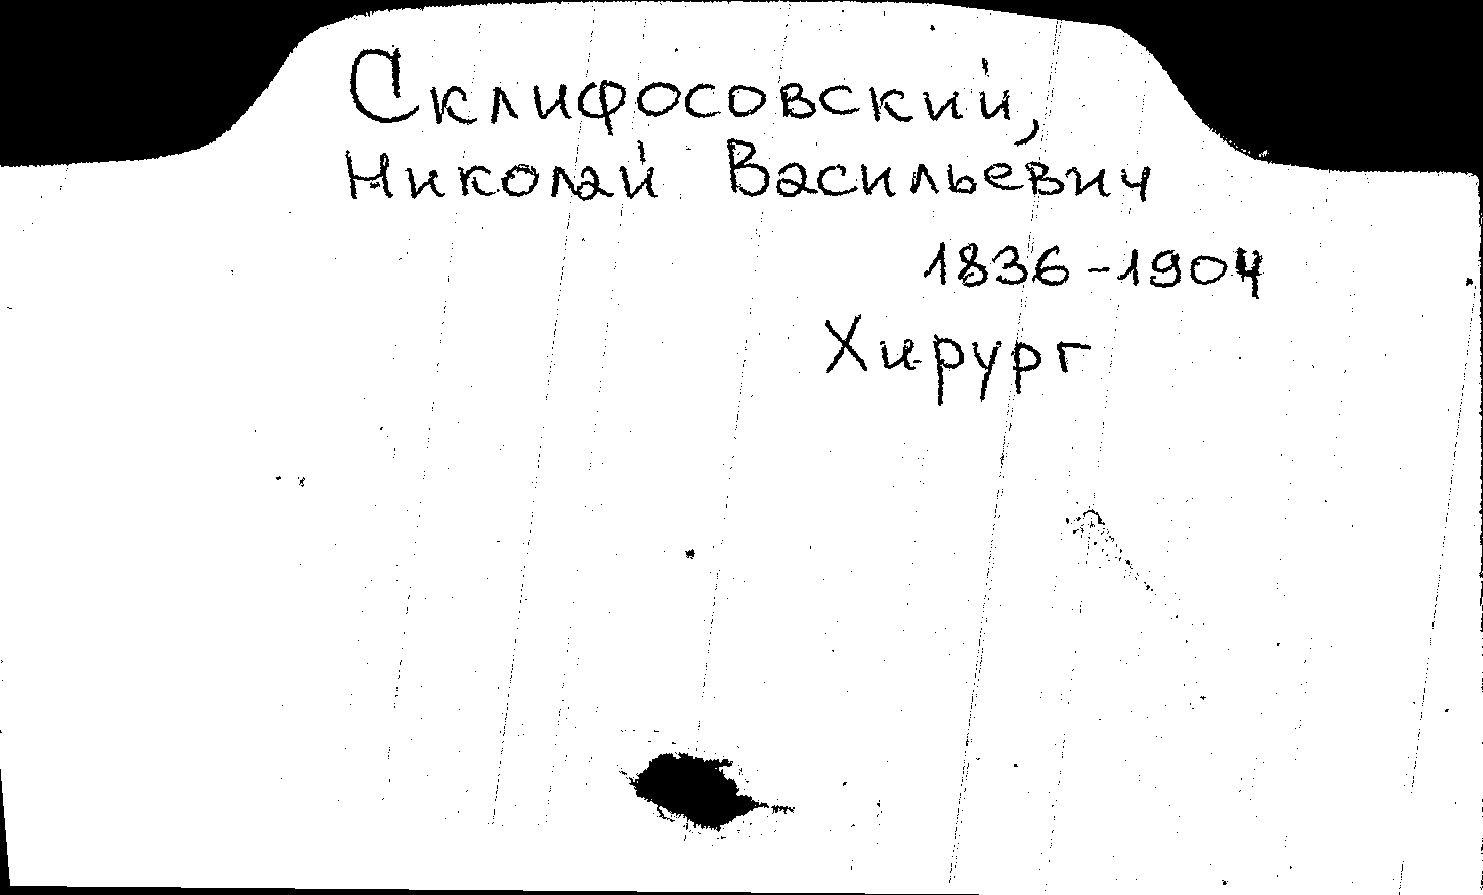 Склифосовский,
Николай Васильевич
1836-1904
Хирург